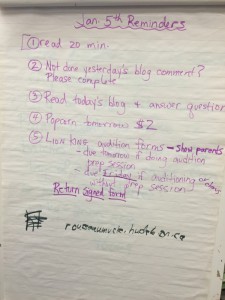 Jan 5th Reminders
① read 20 min.
② Not done yesterday's blog comment?
Please complete
③ Read today's blog & answer question
④ Popcorn tomorrow $2
⑤ Lion King audition forms – show parents
- due tomorrow if doing audition
prep session
- due if auditioning
without prep session
Return signed form